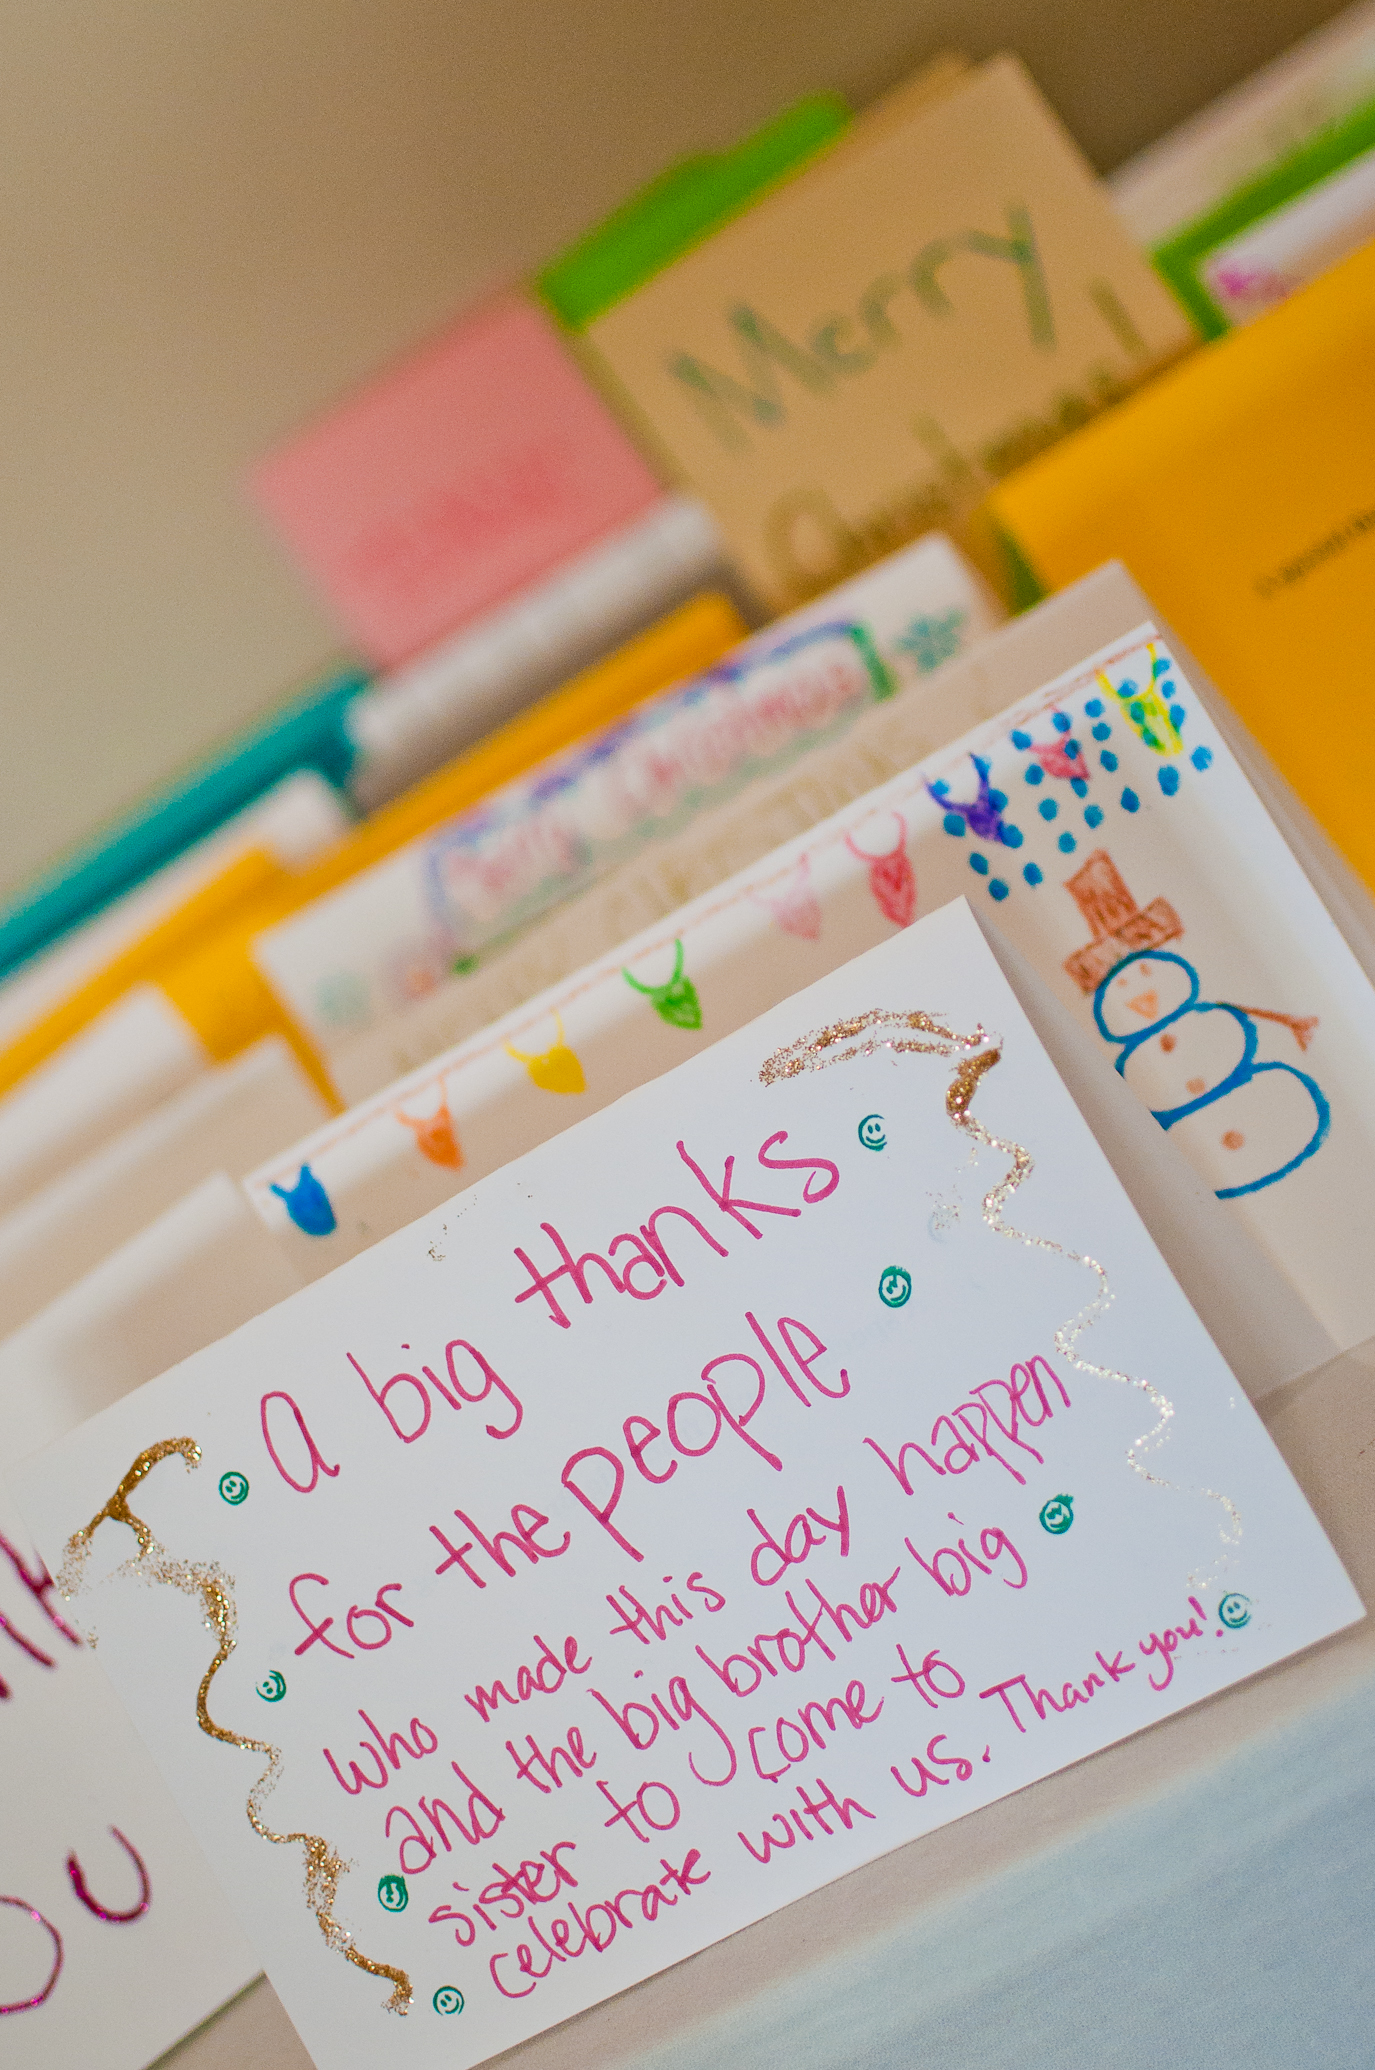 Merry
Christmas!
a big thanks
for the people
who made this day happen
and the big brother big
sister to come to
celebrate with us. Thank you!